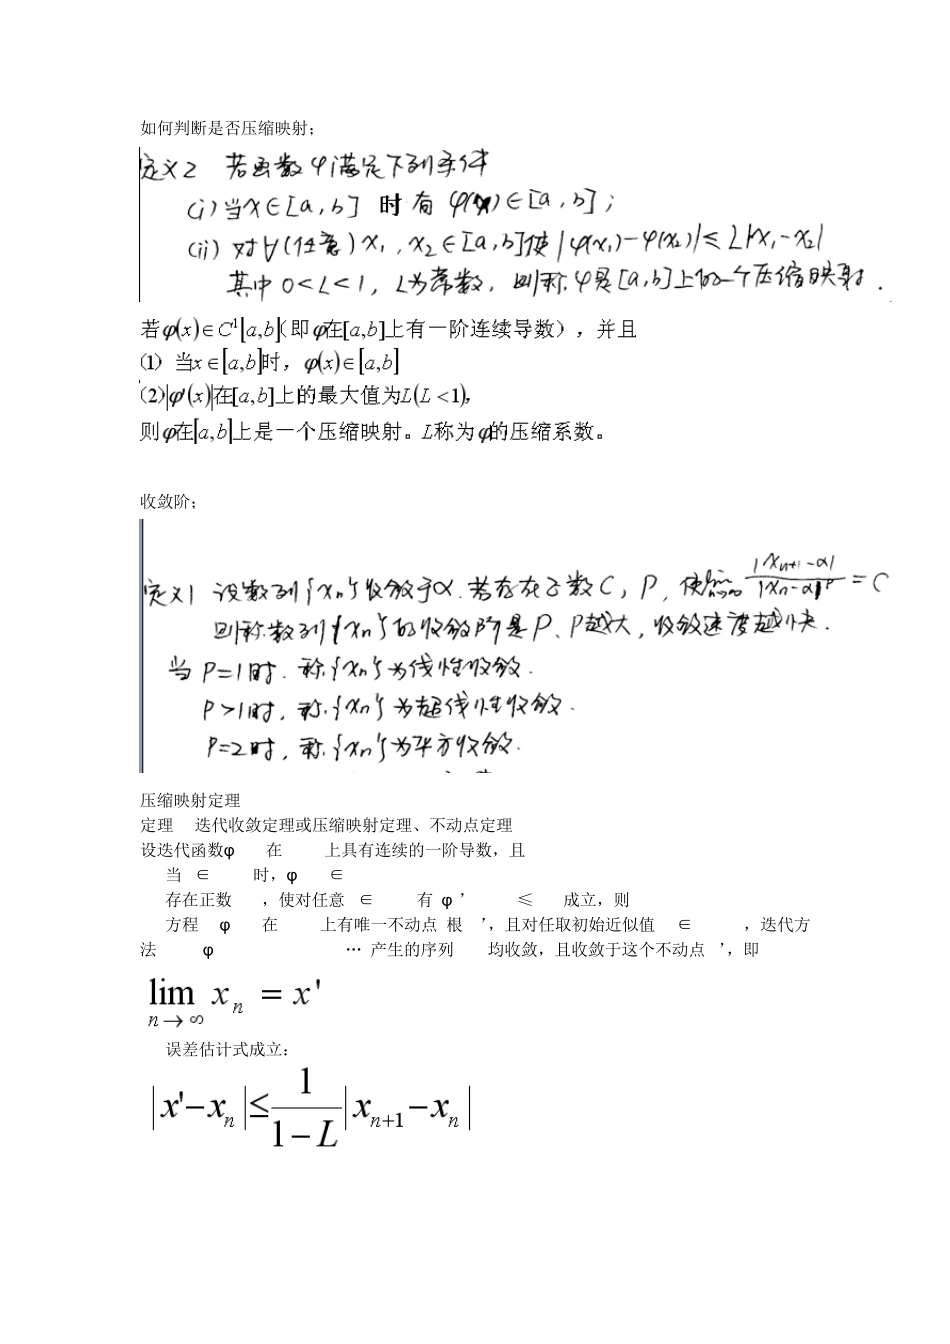 如何判断是否压缩映射；
定义2 若函数φ满足下列条件
(i)当x∈[a,b] 时 有 φ(x)∈[a,b]；
(ii)对∀(任意)x₁,x₂∈[a,b]使|φ(x₁)-φ(x₂)|≤L|x₁-x₂|
其中0<L<1，L为常数，则称φ是[a,b]上的一个压缩映射.
若φ(x)∈C¹[a,b](即φ在[a,b]上有一阶连续导数)，并且
(1) 当x∈[a,b]时，φ(x)∈[a,b]
(2)|φ'(x)|在[a,b]上的最大值为L(L<1)，
则φ在[a,b]上是一个压缩映射。L称为φ的压缩系数。
收敛阶；
定义1 设数列{xₙ}收敛于α.若存在正数C，P，使lim n→∞ |xₙ₊₁-α|/|xₙ-α|ᴾ=C
则称数列{xₙ}的收敛阶是P、P越大，收敛速度越快.
当P=1时.称{xₙ}为线性收敛.
P>1时，称{xₙ}为超线性收敛.
P=2时，称{xₙ}为平方收敛.
压缩映射定理
定理 迭代收敛定理或压缩映射定理、不动点定理
设迭代函数φ 在 上具有连续的一阶导数，且
当 ∈ 时，φ ∈
存在正数 ，使对任意 ∈ 有 φ ’ ≤ 成立，则
方程 φ 在 上有唯一不动点 根 ’，且对任取初始近似值 ∈ ，迭代方
法 φ … 产生的序列 均收敛，且收敛于这个不动点 ’，即
lim n→∞ xₙ = x'
误差估计式成立：
|x'-xₙ|≤1/(1-L)|xₙ₊₁-xₙ|